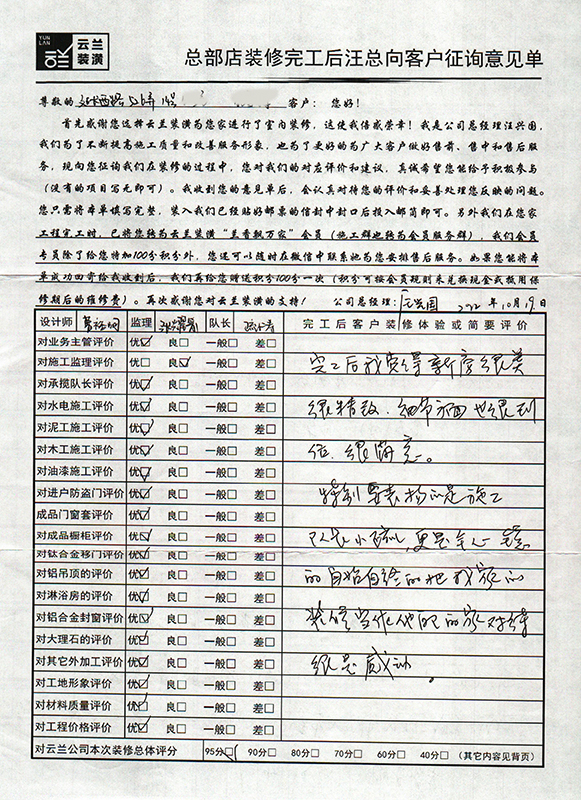 YUN LAN
云兰装潢
总部店装修完工后汪总向客户征询意见单
尊敬的 延西路 弄 客户：您好！
首先感谢您选择云兰装潢为您家进行了室内装修，这使我倍感荣幸！我是公司总经理汪兴国，
我们为了不断提高施工质量和改善服务形象，也为了更好的为广大客户做好售前、售中和售后服
务，现向您征询我们在装修的过程中，您对我们的对应评价和建议，真诚希望您能给予积极参与
（没有的项目写无即可）。我收到您的意见单后，会认真对待您的评价和妥善处理您反映的问题。
您只需将本单填写完整，装入我们已经贴好邮票的信封中封口后投入邮筒即可。另外我们在您家
工程完工时，已将您转为云兰装潢“兰香飘万家”会员（施工群也转为会员服务群），我们会员
专员除了给您特加100分积分外，您还可以随时在微信中联系她为您安排售后服务。如果您能将本
单成功回寄给我收到后，我们再给您赠送积分100分一次（积分可按会员规则来兑换现金或抵用保
修期后的维修费）。再次感谢您对云兰装潢的支持！ 公司总经理：汪兴国 2022年10月19日
设计师 监理 队长 完工后客户装修体验或简要评价
对业务主管评价 优☑ 良□ 一般□ 差□
对施工监理评价 优□ 良☑ 一般□ 差□ 完工后我觉得新房很美
对承揽队长评价 优☑ 良□ 一般□ 差□
对水电施工评价 优☑ 良□ 一般□ 差□ 很精致．细节方面也很到
对泥工施工评价 优☑ 良□ 一般□ 差□
对木工施工评价 优☑ 良□ 一般□ 差□ 位．很满意。
对油漆施工评价 优☑ 良□ 一般□ 差□
对进户防盗门评价 优☑ 良□ 一般□ 差□ 特别要表扬的是施工
成品门窗套评价 优☑ 良□ 一般□ 差□
对成品橱柜评价 优☑ 良□ 一般□ 差□ 队长小陈，更是全心全意
对钛合金移门评价 优☑ 良□ 一般□ 差□
对铝吊顶的评价 优☑ 良□ 一般□ 差□ 的自始自终的把我家的
对淋浴房的评价 优☑ 良□ 一般□ 差□
对铝合金封窗评价 优☑ 良□ 一般□ 差□ 装修当作他自己的家对待
对大理石的评价 优☑ 良□ 一般□ 差□
对其它外加工评价 优☑ 良□ 一般□ 差□ 很是感动。
对工地形象评价 优☑ 良□ 一般□ 差□
对材料质量评价 优☑ 良□ 一般□ 差□
对工程价格评价 优☑ 良□ 一般□ 差□
对云兰公司本次装修总体评分 95分☑ 90分□ 80分□ 70分□ 60分□ 40分□ （其它内容见背页）